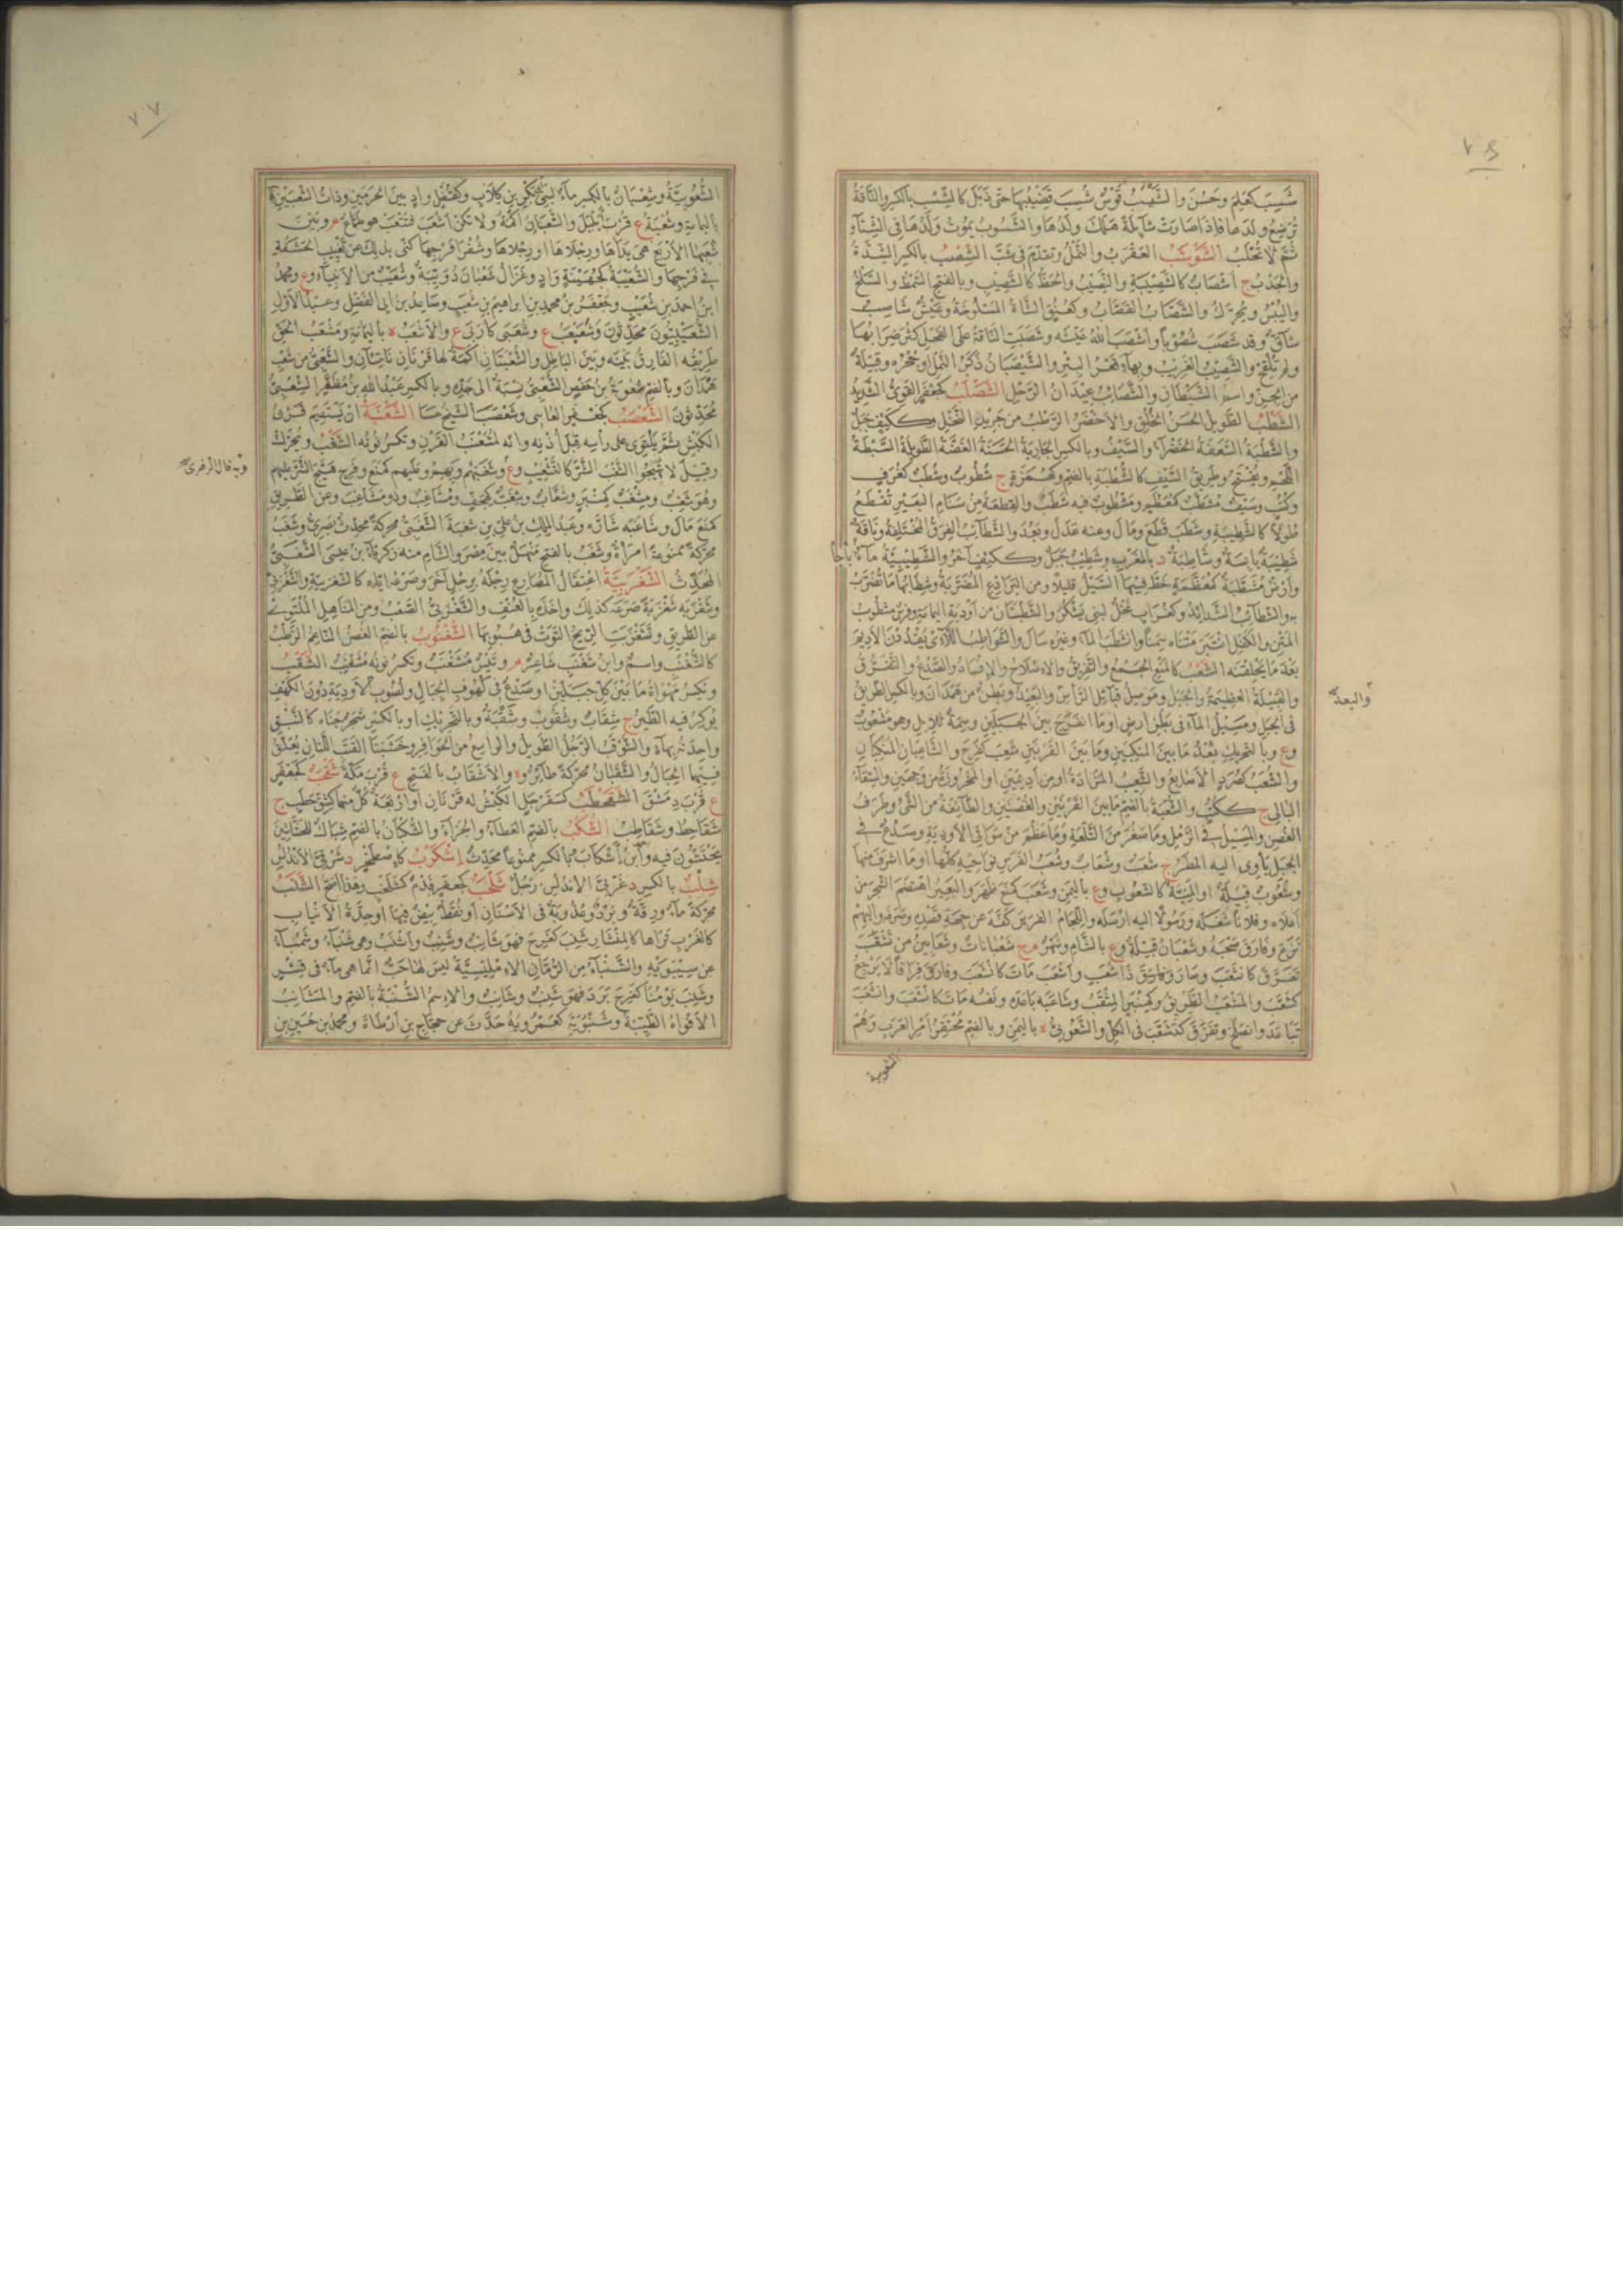 شَسِبَ كعَلِمَ وحَسُنَ والشَّسِيبُ قَوْسٌ شُسِبَ قَضِيبُها حتى ذَبَلَ كالشِّسْبِ بالكسر والناقةُ
تُرْضِعُ ولدها فاذا صارت شائلة هلك ولدها والشَّسُوبُ يموت ولدها في الشتآء
ثم لا تُحْلَبُ الشَّوْشَبُ العقرب والنمل وتقدم في ش ب ب الشِّصْبُ بالكسر الشدة
والجدب ج اشصاب كالشصيبة والنصيب والحظ كالشصيب وبالفتح السمط والسلخ
واليبس ويحرك والشصاب القصاب وكعنق الشاة المسلوخة وعيش شاصب
شاق وقد شصب شصوبا واشصب الله عيشه وشصبت الناقة على الفحل كثر ضرابها
ولم تلقح والشصيب الغريب وبهآء قعر البئر والشيصبان ذكر النمل او جحره وقبيلة
من الجن واسم الشيطان والشصائب عيدان الرحل الشَّصْلَبُ كجعفر القوي الشديد
الشطب الطويل الحسن الخلق والاخضر الرطب من جريد النخل وككتف جبل
والشطبة السعفة الخضرآء والسيف وبالكسر الجارية الحسنة الغضة الطويلة السبطة
اللحم ويفتح وطريق السيف كالشطبة بالضم وكهمزة ج شطوب وشطب كغرف
وكتب وسيف مشطب كمعظم ومشطوب فيه شطب والقطعة من سنام البعير تقطع
طولا كالشطيبة وشطب قطع ومال وعنه عدل وبعد والشطائب الفرق المختلفة وناقة
شطيبة يابسة وشاطبة د بالمغرب وشطيب جبل وككتف آخر والشطيبية مآء بأجأ
وارض مشطبة كمعظمة خط فيها السيل قليلا ومن البراذع المضربة وشطابها ما تضرب
به والشطائب الشدائد وكغراب نخل لبني يشكر والشطبتان من اودية اليمامة وفرس مشطوب
المتن والكفل انتبر متناه سمنا وانشطب المآء وغيره سال والشواطب اللاتي يقددن الاديم
بعد ما يخلقنه الشَّعْبُ كالمنع الجمع والتفريق والاصلاح والافساد والصدع والتفرق
والقبيلة العظيمة والجبل وموصل قبائل الراس والبعيد وبطن من همدان وبالكسر الطريق
في الجبل ومسيل المآء في بطن ارض او ما انفرج بين الجبلين وسمة للابل وهو مشعوب
وع وبالتحريك بعد ما بين المنكبين وما بين القرنين شعب كفرح والشاعبان المنكبان
والشعب كصرد الاصابع والشعيب المزادة او من اديمين او المخروزة من وجهين والسقآء
البالي ج ككتب والشعبة بالضم ما بين القرنين والغصنين والطائفة من الشئ وطرف
الغصن والمسيل في الرمل وما صغر من التلعة وما عظم من سواقي الاودية وصدع في
الجبل يأوي اليه المطر ج شعب وشعاب وشعب الفرس نواحيه كلها او ما اشرف منها
وشعوب قبيلة او المنية كالشعوب وع باليمن وشعب كمنع ظهر والبعير اهتضم الشجر من
اعلاه وفلانا شغله ورسولا اليه ارسله واللجام الفرس كفه عن جهة قصده وصرفه واليهم
نزع وفارق صحبه وشعبان قبيلة وع بالشام وشهر م ج شعبانات وشعابين من تشعب
تفرق كانشعب وصار وقاسق ذا شعب واشعب مات كانشعب وفارق فراقا لا يرجع
كشعب والمشعب الطريق وكمنبر المثقب وشاعبه باعده ونفسه مات كانشعب وانشعب
تباعد وانصلح وتفرق كتشعب في الكل والشعوبي ة باليمن وبالضم محتقر امر العرب وهم
الشعوبية
والبعد
الشعوبية وشعبان بالكسر مآء لبني بكر بن كلاب وكقفل واد بين الحرمين وذات الشعبين ة
باليمامة وشعبة ع قرب يليل والشعبان اكمة ولا تكن اشعب فتتعب هو طماع م وبين
شعبها الاربع هي يداها ورجلاها او رجلاها وشفرا فرجها كنى بذلك عن تغييب الحشفة
في فرجها والشعيبة كجهينة واد وغزال شعبان دويبة وشعيب من الانبيآء وع ومحمد
ابن احمد بن شعيب وجعفر بن محمد بن ابراهيم بن شعيب وصاعد بن ابي الفضل وعبد الاول
الشعيبيون محدثون وشعبعب ع وشعبى كأربى ع والاشعب ة باليمامة ومشعب الحق
طريقه الفارق بينه وبين الباطل والشعبتان اكمة لها قرنان ناتئان والشعبي من شعب
همدان وبالضم معوية بن حفص الشعبي نسبة الى جده وبالكسر عبد الله بن مظفر الشعبي
محدثون الشَّعْصَبُ كجعفر العاسي وشعصب الشيخ عسا الشَّعْنَبَةُ ان يستقيم قرن
الكبش ثم يلتوي على رأسه قبل اذنه وانه لمشعنب القرن وتكسر نونه الشَّغْبُ ويحرك
وقيل لا تهييج الشر كالتشغيب وع وشغبهم وبهم وعليهم كمنع وفرح هيج الشر عليهم
وهو شغب ومشغب كمنبر وشغاب وشغب كهجف ومشاغب وذو مشاغب وعن الطريق
كمنع مال وشاغبه شاره وعبد الملك بن علي بن شغبة الشغبي محركة محدث بصري وشغب
محركة ممنوعة امرأة وشغب بالفتح منهل بين مصر والشام منه زكريآء بن عيسى الشغبي
المحدث الشَّغْزَبِيَّةُ اعتقال المصارع رجله برجل آخر وصرعه اياه كالشغزبية والشغزبي
وشغزبه شغزبة صرعه كذلك واخذه بالعنف والشغزبي الصعب ومن المناهل الملتوي
عن الطريق وتشغزبت الريح التوت في هبوبها الشُّغْنُوبُ بالضم الغصن الناعم الرطب
كالشغنب واسم وابن شغنب شاعر م وتيس مشغنب وتكسر نونه مشغنب الشَّقْبُ
ويكسر مهواة ما بين كل جبلين او صدع في كهوف الجبال ولصوب الاودية دون الكهف
يوكر فيه الطير ج شقاب وشقوب وشقبة وبالتحريك او بالكسر شجر جناه كالنبق
واحدته بهآء والشوقب الرجل الطويل والواسع من الحوافر وخشبتا القتب اللتان تعلق
فيهما الحبال والشقبان محركة طائر وة والاشقاب بالفتح ع قرب مكة شَقْحَبٌ كجعفر
ع قرب دمشق الشَّقَحْطَبُ كسفرجل الكبش له قرنان او اربعة كل منها كشق حطب ج
شقاحط وشقاطب الشُّكْبُ بالضم العطآء والجزآء والشكبان بالضم شباك للحشاشين
يحتشون فيه وابن اشكاب بالكسر ممنوعا محدث إشْكَرْبُ كاصطخر د شرقي الاندلس
شِلْبُ بالكسر د غربي الاندلس رجل شَلْخَبٌ كجعفر فدم كشلخب وهذا اصح الشَّنَبُ
محركة مآء ورقة وبرد وعذوبة في الاسنان او نقط بيض فيها او حدة الانياب
كالغرب تراها كالمنشار شنب كفرح فهو شانب وشنيب واشنب وهي شنبآء وشمبآء
عن سيبويه والشنبآء من الرمان الامليسية ليس لها حب انما هي مآء في قشر
وشنب يومنا كفرح برد فهو شنب وشانب والاسم الشنبة بالضم والمشانب
الافواه الطيبة وشنبوية كعمرويه حدث عن حجاج بن ارطاة ومحمد بن حسين بن
وبه قال الزهري
٧٧